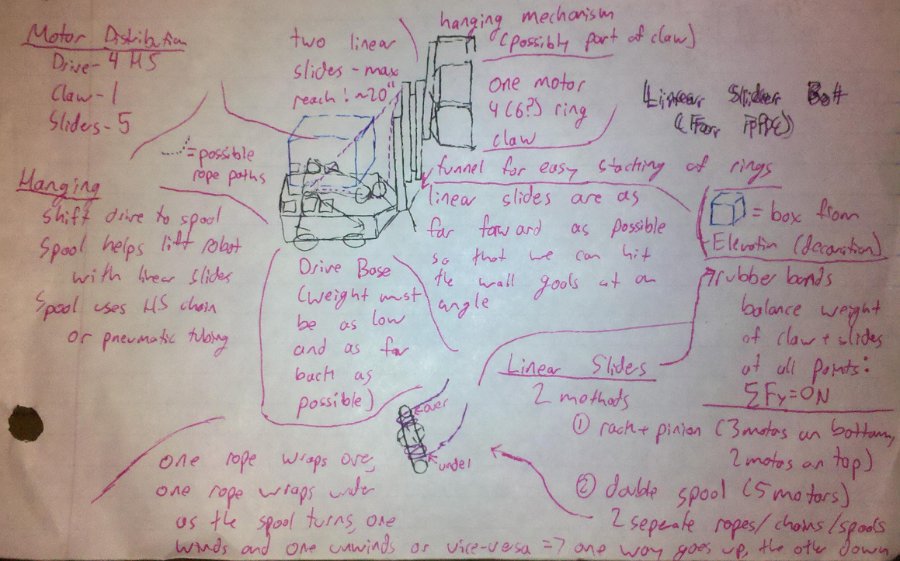 Motor Distribution
Drive - 4 HS
Claw - 1
Sliders - 5
two linear
slides - max
reach! ~20"
hanging mechanism
(possibly part of claw)
one motor
4 (6?) ring
claw
Linear Slider Bot
(For FPDC)
= possible
rope paths
funnel for easy stacking of rings
Hanging
Shift drive to spool
Spool helps lift robot
with linear slides
Spool uses HS chain
or pneumatic tubing
linear slides are as
far forward as possible
so that we can hit
the wall goals at an
angle
= box from
Elevation (decoration)
Drive Base
(weight must
be as low
and as far
back as
possible)
rubber bands
balance weight
of claw + slides
at all points:
ΣFy = 0N
Linear Sliders
2 methods
① rack + pinion (3 motors on bottom,
2 motors on top)
② double spool (5 motors)
2 seperate ropes/chains/spools
over
under
one rope wraps over,
one rope wraps under
as the spool turns, one
winds and one unwinds or vice-versa => one way goes up, the other down